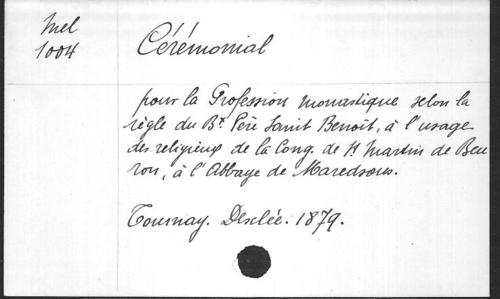 Mel
1004
Cérémonial
pour la Profession monastique selon la
règle du Bt. Père Saint Benoît, à l'usage
des religieux de la Cong. de St Martin de Beu
ron, à l'Abbaye de Maredsous.
Tournay. Desclée. 1879.